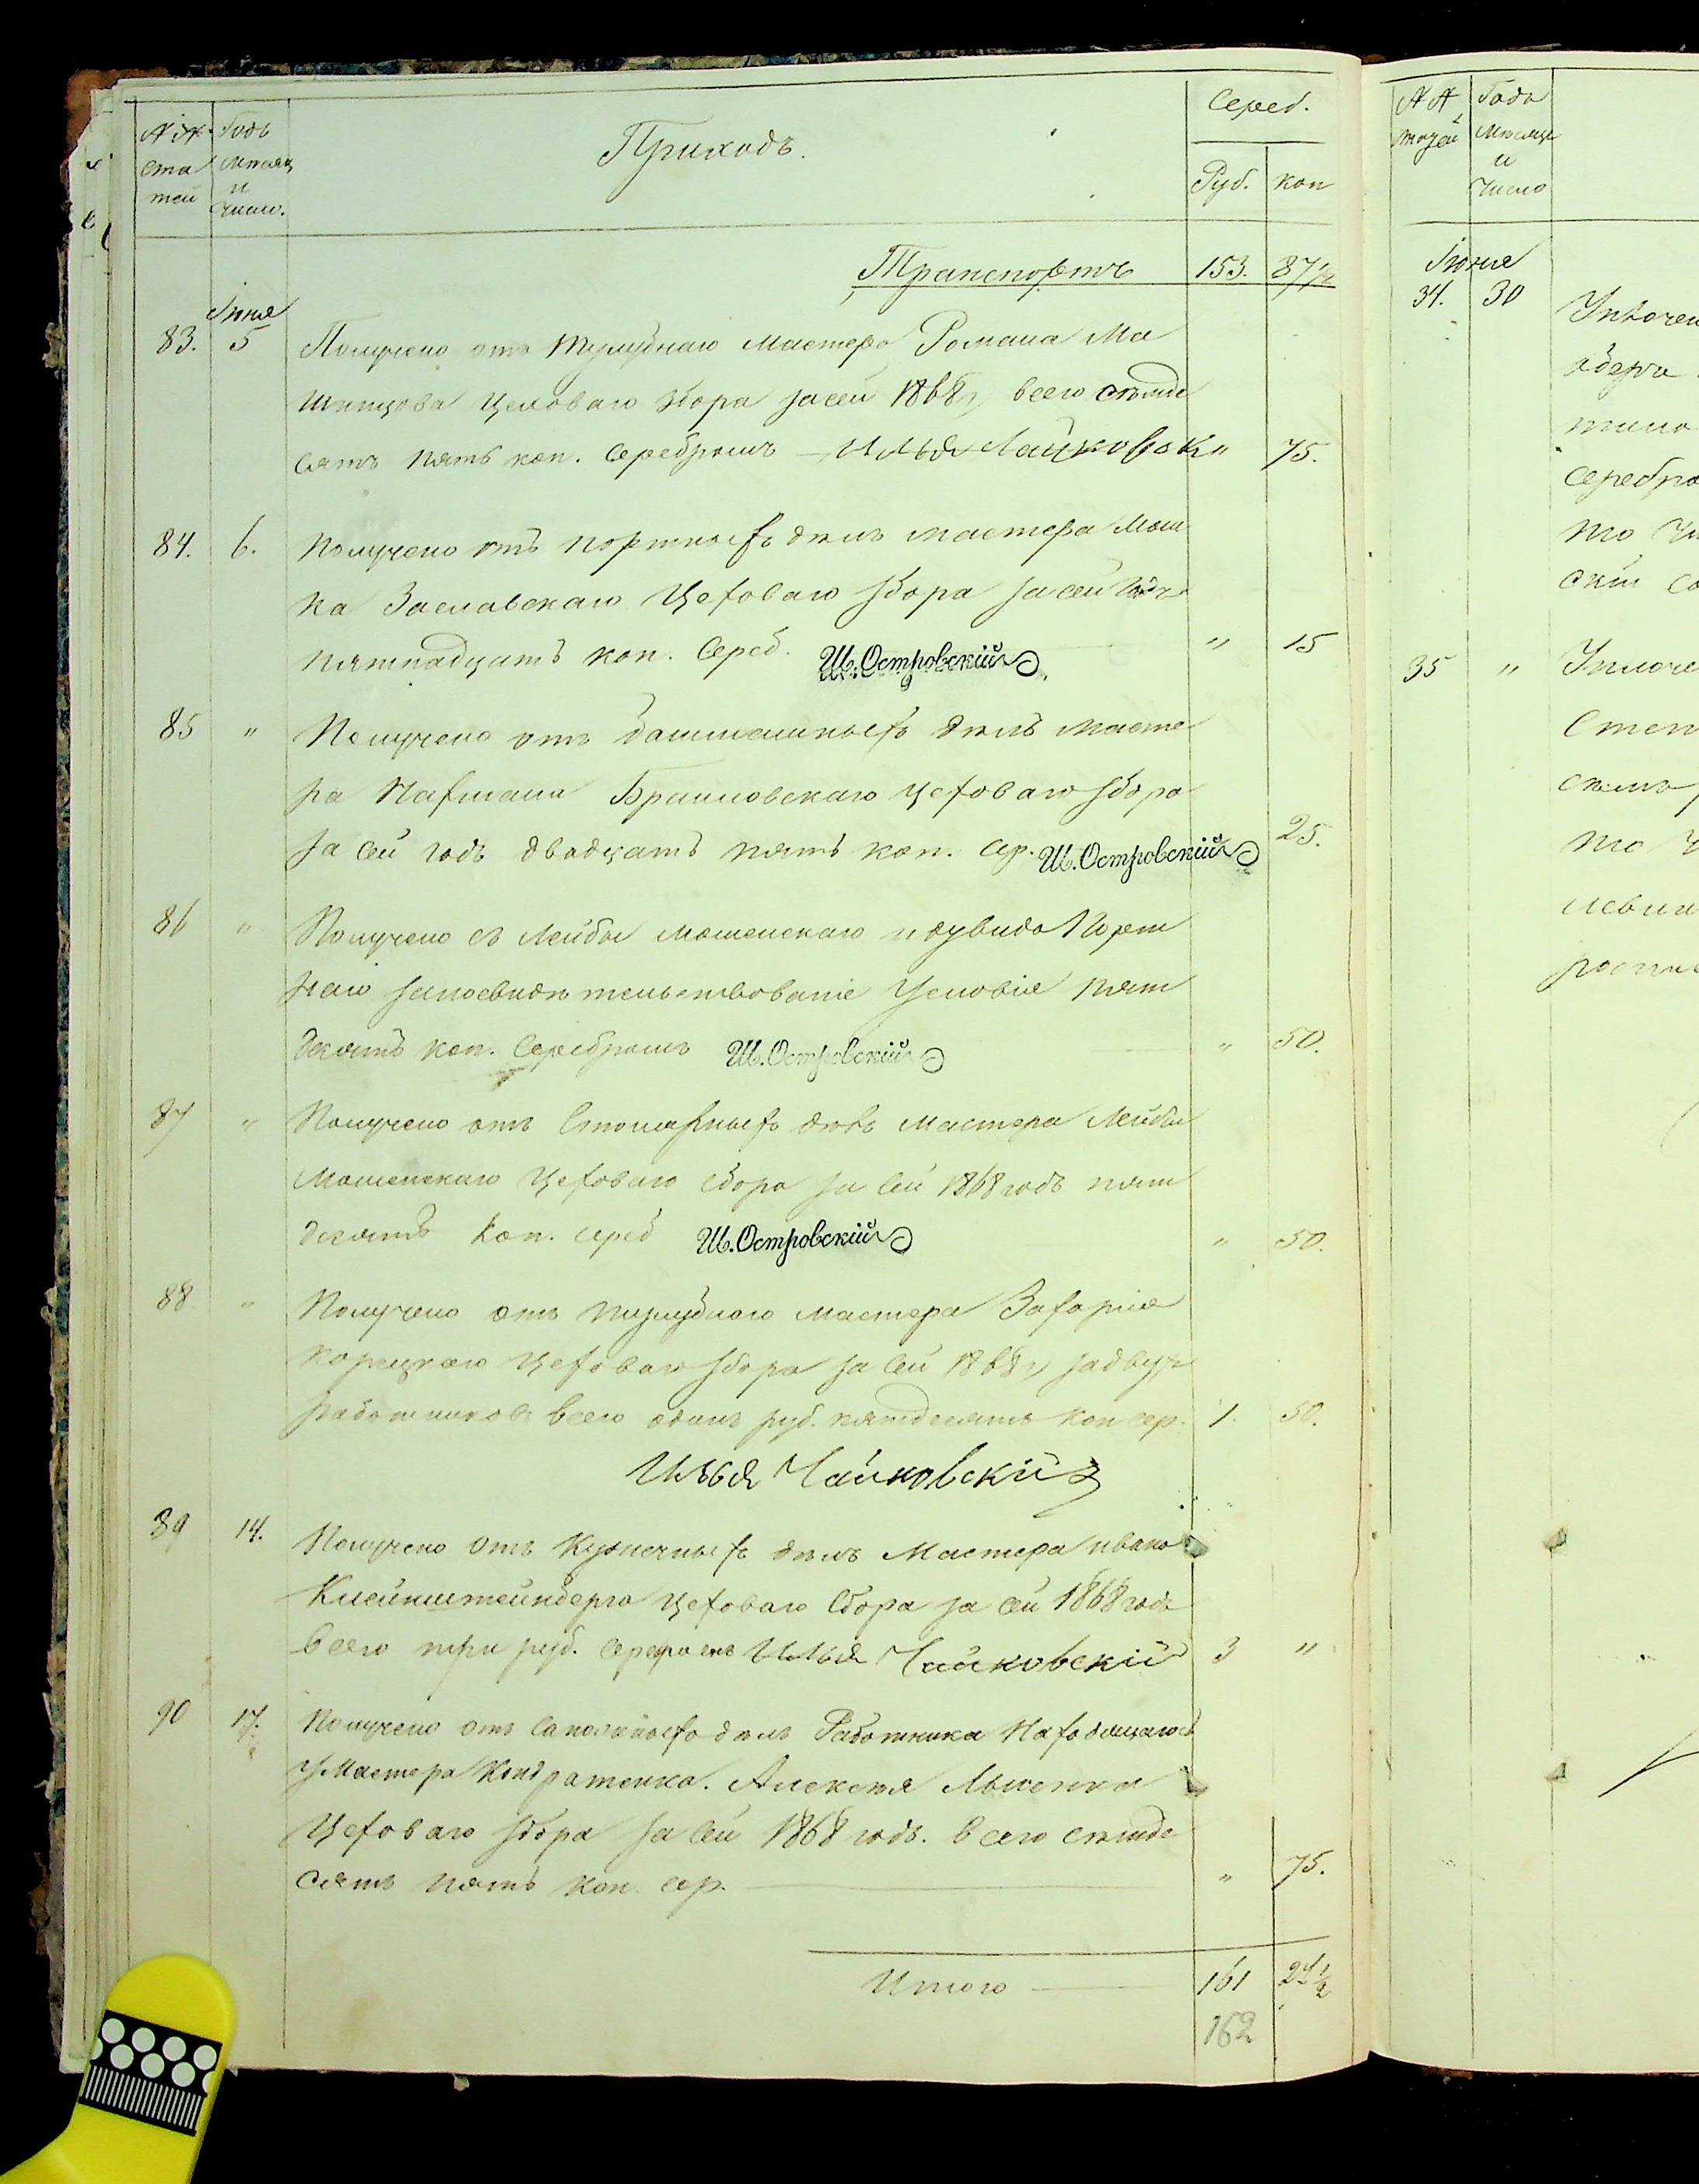 №№ статей
Годъ мѣсяцъ и число.
Приходъ.
Сереб.
Руб. коп
Транспортъ 153. 87½
Іюня
83. 5 Получено отъ тулубнаго мастера Романа Ма
цеховаго збора за сей 1868 г, всего сѣмде
сятъ пять коп. серебромъ — Илья Чайковск " 75.
84. 6. Получено отъ портныхъ дѣлъ мастера Мош
ка Заславскаго Цеховаго збора за сей годъ
пятнадцать коп. Сереб. Ш. Островскій " 15
85 " Получено отъ башмашныхъ дѣлъ масте
ра Нахмана Браиловскаго цеховаго збора
за сей годъ двадцать пять коп. сер. Ш. Островскій 25.
86 " Получено съ Лейбы Мошенскаго и Дувида Порт
наго засвидѣтельствованіе Условія пят
десятъ коп. Серебромъ Ш. Островскій " 50.
87 " Получено отъ Столярныхъ дѣлъ мастера Лейбы
Мошенскаго Цеховаго сбора за сей 1868 годъ пят
десятъ коп. сереб Ш. Островскій " 50.
88 " Получено отъ мастера Захарія
Корецкаго Цеховаго збора за сей 1868 г, за двухъ
работниковъ всего одинъ руб. пятдесятъ коп сер. 1. 50.
Илья Чайковскій
89 14. Получено отъ Кузнечныхъ дѣлъ Мастера Ивана
Клейнштейнберга Цеховаго Сбора за сей 1868 годъ
всего три руб. серебромъ Илья Чайковскій 3 "
90 17. Получено отъ Сапожныхъ дѣлъ Работника Находящагось
у Мастера Кондратенка. Алексѣя Лысенка
Цеховаго збора за сей 1868 годъ. всего сѣмде
сятъ пять коп. сер. " 75.
Итого 161 27½
162
№№ статей
Годъ мѣсяцъ и число
Іюня
34. 30 Уплочен
серебро
то
скій
35 " Уплоче
Степ
то